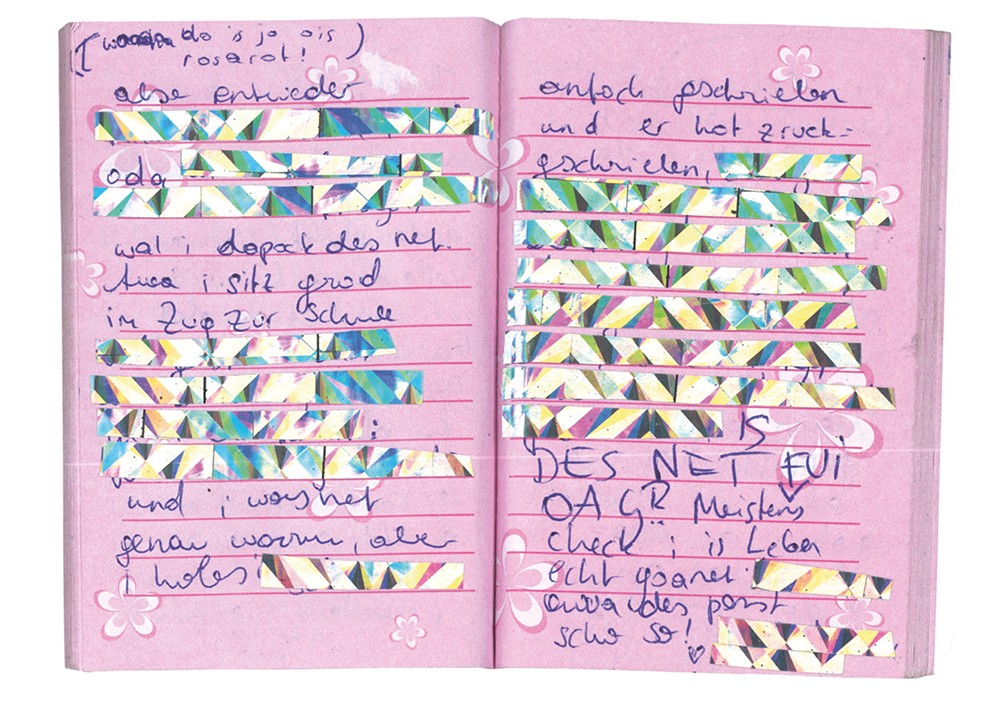 do is jo ois )
rosarot!
also entweder
oda
wal i dapack des net.
Awa i sitz grod
im Zug zur Schule
und i was net
genau warum, aber
i
einfoch gschrieben
und er hot zruck-
gschrieben,
IS
DES NET FUI
OAG Meistens
check i is Leben
echt goanet.
awa des passt
scho so!